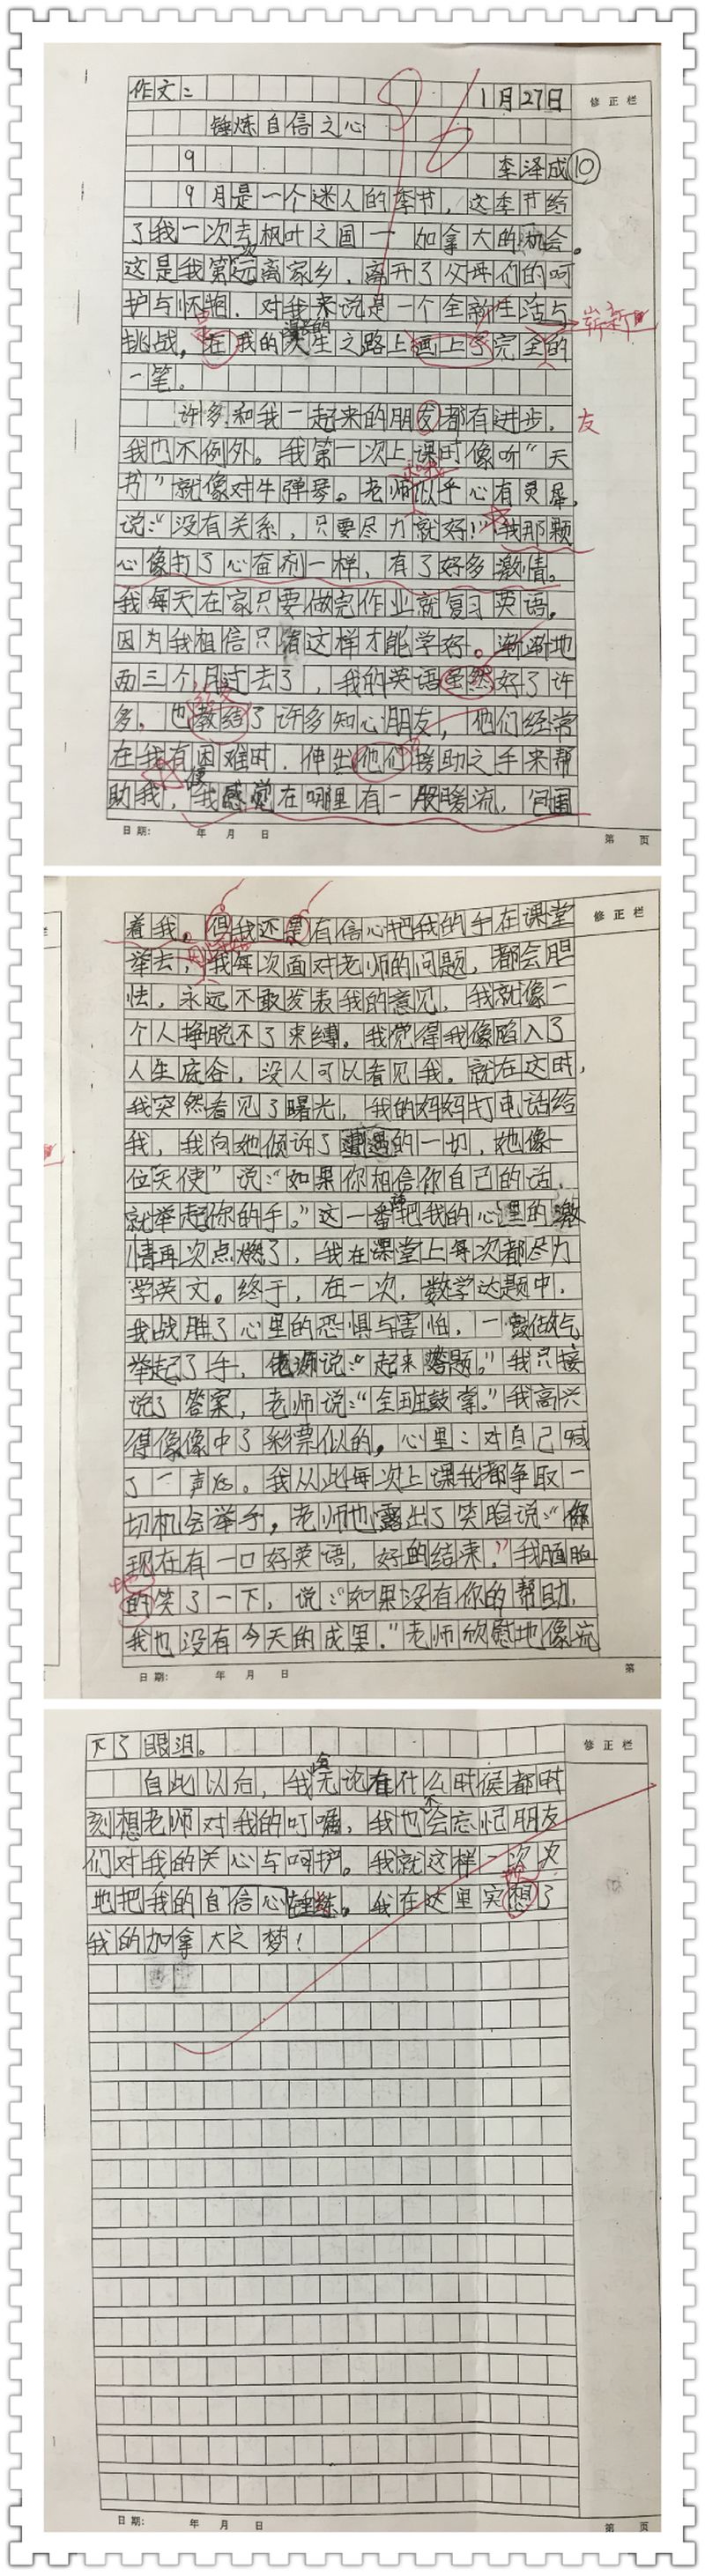 作文：
1月27日
修正栏
96
锤炼自信之心
9 李泽成 10
9月是一个迷人的季节，这季节给
了我一次去枫叶之国一加拿大的机会。
这是我第一次远离家乡，离开了父母们的呵
护与怀抱，对我来说是一个全新生活与
崭新
挑战，在我的漫长的人生之路上画上了完全的
一笔。
许多和我一起来的朋友都有进步，
友
我也不例外。我第一次上课时像听“天
书”就像对牛弹琴。老师似乎心有灵犀，
说：“没有关系，只要尽力就好！”我那颗
心像打了心奋剂一样，有了好多激情。
我每天在家只要做完作业就复习英语。
因为我相信只有这样才能学好。渐渐地
两三个月过去了，我的英语虽然好了许
多。也教结了许多知心朋友，他们经常
在我有困难时，伸出他们援助之手来帮
助我，使我感觉在哪里有一股暖流，包围
日期： 年 月 日 第 页
修正栏
着我。但我还是有信心把我的手在课堂
举去，我每次面对老师的问题，都会胆
怯，永远不敢发表我的意见，我就像一
个人挣脱不了束缚。我觉得我像陷入了
人生底谷，没人可以看见我。就在这时，
我突然看见了曙光，我的妈妈打电话给
我，我向她倾诉了遭遇的一切，她像一
位天使”说：“如果你相信你自己的话，
就举起你的手。”这一番话把我的心里的激
情再次点燃了，我在课堂上每次都尽力
学英文。终于，在一次，数学达题中，
我战胜了心里的恐惧与害怕，一鼓做气
举起了手，老师说：“起来答题。”我只接
说了答案，老师说：“全班鼓掌。”我高兴
得像像中了彩票似的。心里：对自己喊
了一声 。我从此每次上课我都争取一
切机会举手，老师也露出了笑脸说：“你
现在有一口好英语，好的结来！”我腼腆
地
的笑了一下，说：“如果没有你的帮助，
我也没有今天的成果。”老师欣慰地像流
日期： 年 月 日 第
修正栏
下了眼泪。
自此以后，我无论在什么时候都时
刻想老师对我的叮嘱，我也不会忘记朋友
们对我的关心与呵护。我就这样一次次
地把我的自信心锤炼。我在这里实想了
我的加拿大之梦！
日期： 年 月 日 第 页